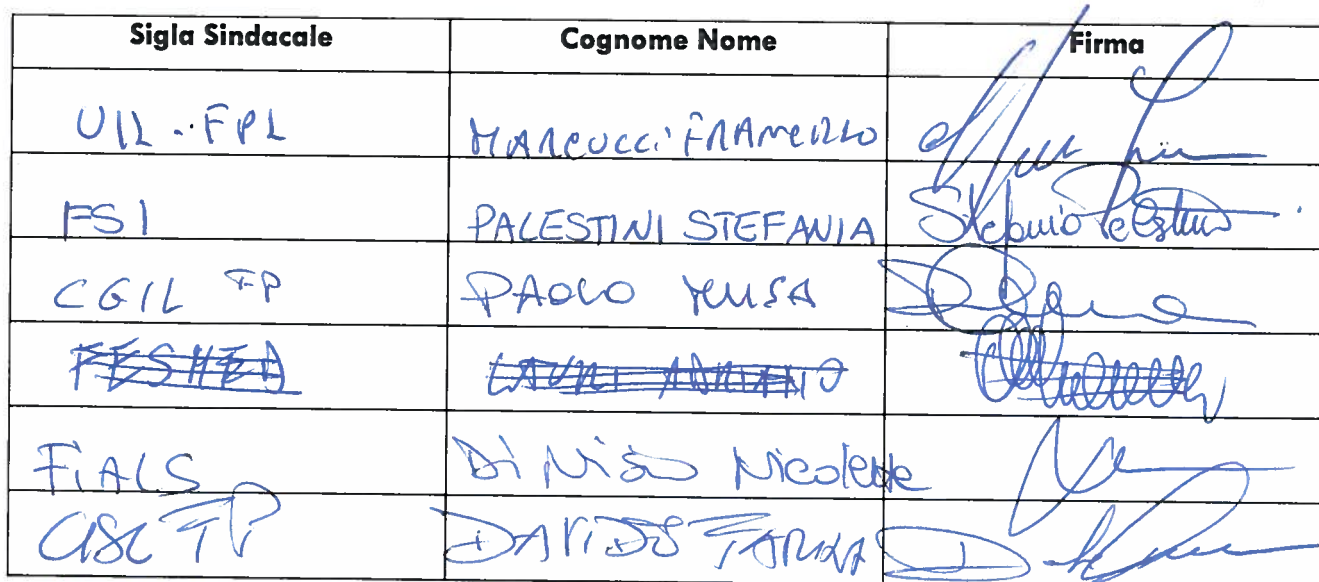 Sigla Sindacale Cognome Nome Firma
UIL - FPL MARCUCCI
FSI PALESTINI STEFANIA Stefania Palestini
CGIL FP PAOLO MUSA
FESMED LAURI ADRIANO
FIALS Di Nicolette
CISL FP DAVIDE FARINA